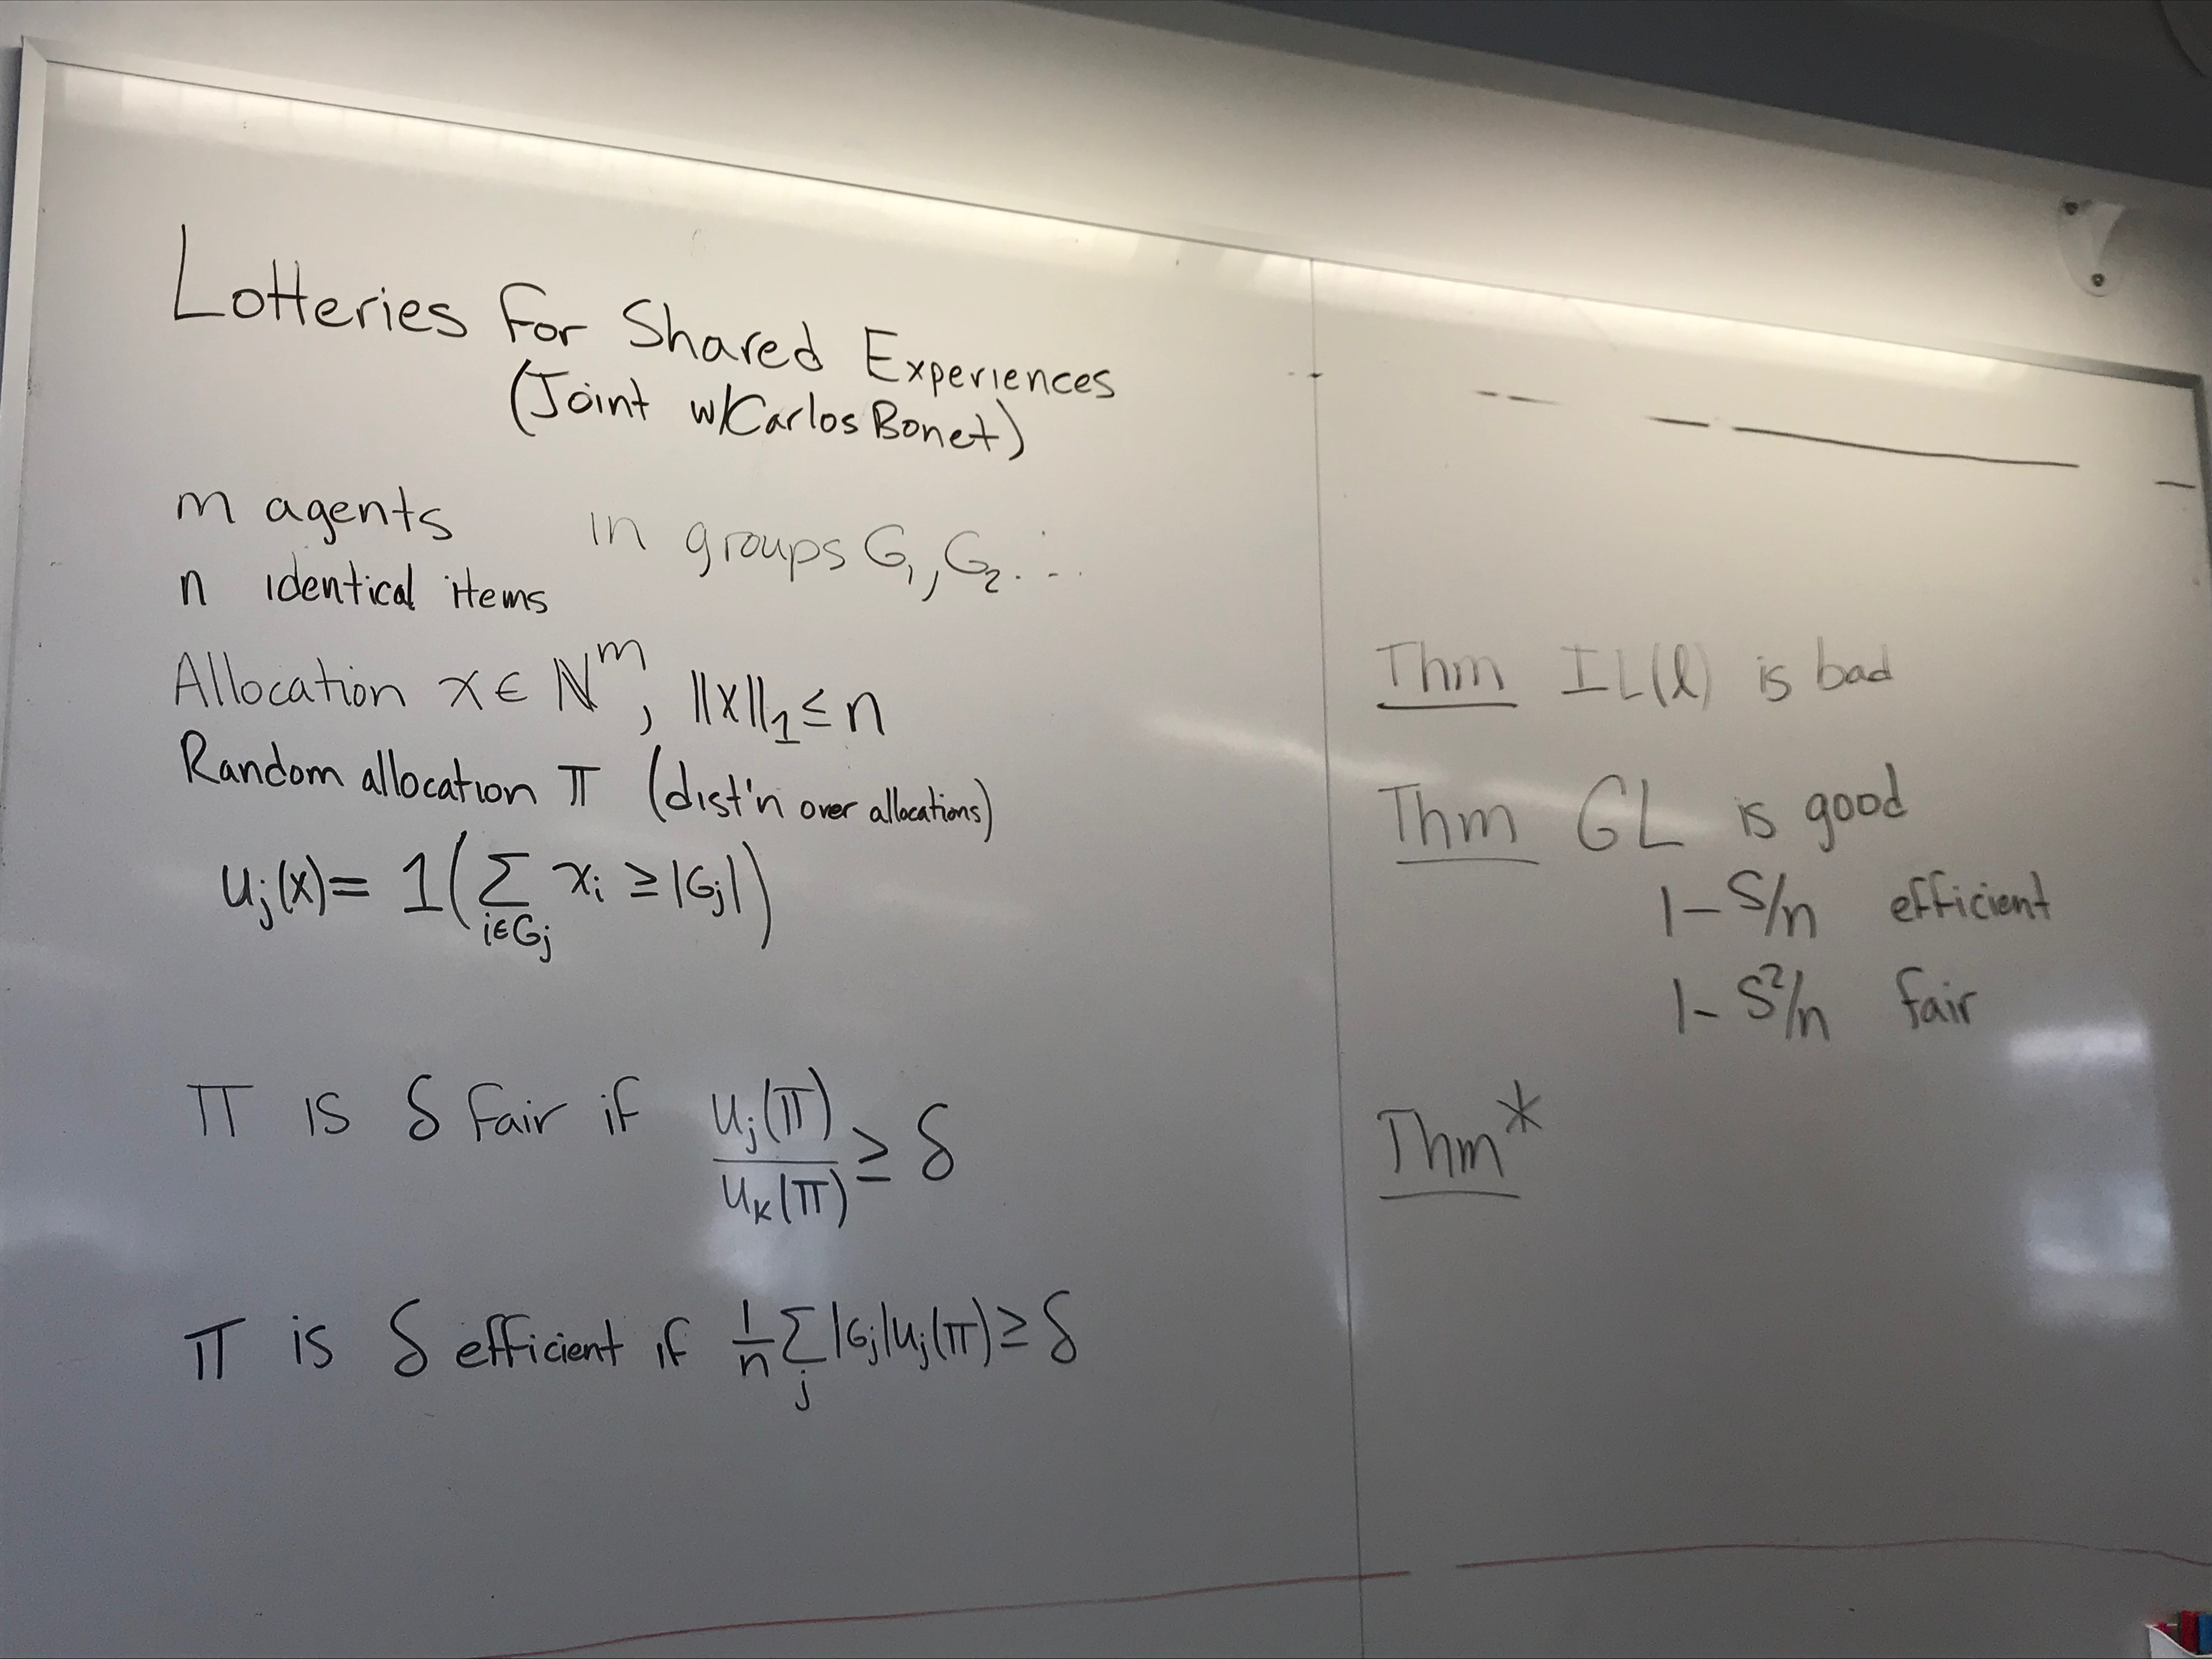 Lotteries for Shared Experiences
(Joint w/Carlos Bonet)
m agents in groups G₁, G₂...
n identical items
Allocation x ∈ ℕᵐ, ||x||₁ ≤ n
Random allocation π (dist'n over allocations)
uⱼ(x) = 1(∑ xᵢ ≥ |Gⱼ|)
i∈Gⱼ
π is δ fair if uⱼ(π)/uₖ(π) ≥ δ
π is δ efficient if 1/n ∑ⱼ |Gⱼ|uⱼ(π) ≥ δ
Thm IL(ℓ) is bad
Thm GL is good
1 – S/n efficient
1 - S²/n fair
Thm*